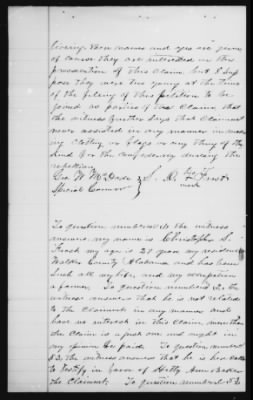 living whose names and ages are given
of course they are interested in the
prosecution of this Claim, but I sup
pose they were too young at the time
of the filing of this petition to be
found as parties of this Claim, that
the witness further says that Claimant
never assisted in any manner in making
any Clothing or flags or any thing of the
kind for the confederacy during the
rebellion.
Geo W McDade } S. D. his x First
Special Commr mark
To question numbered the witness
answers, my name is Christopher S.
my age is 28 years my residence
Walker County Alabama and has been
such all my life, and my occupation
a farmer. To question numbered 2. the
witness answers that he is not related
to the Claimant in any manner and
have no interest in this Claim, more than
the Claim is a just one and ought in
my be paid. To question numbered
2. the witness answers that he is here
to testify in favor of Hetty Ann
the Claimant. To question numbered